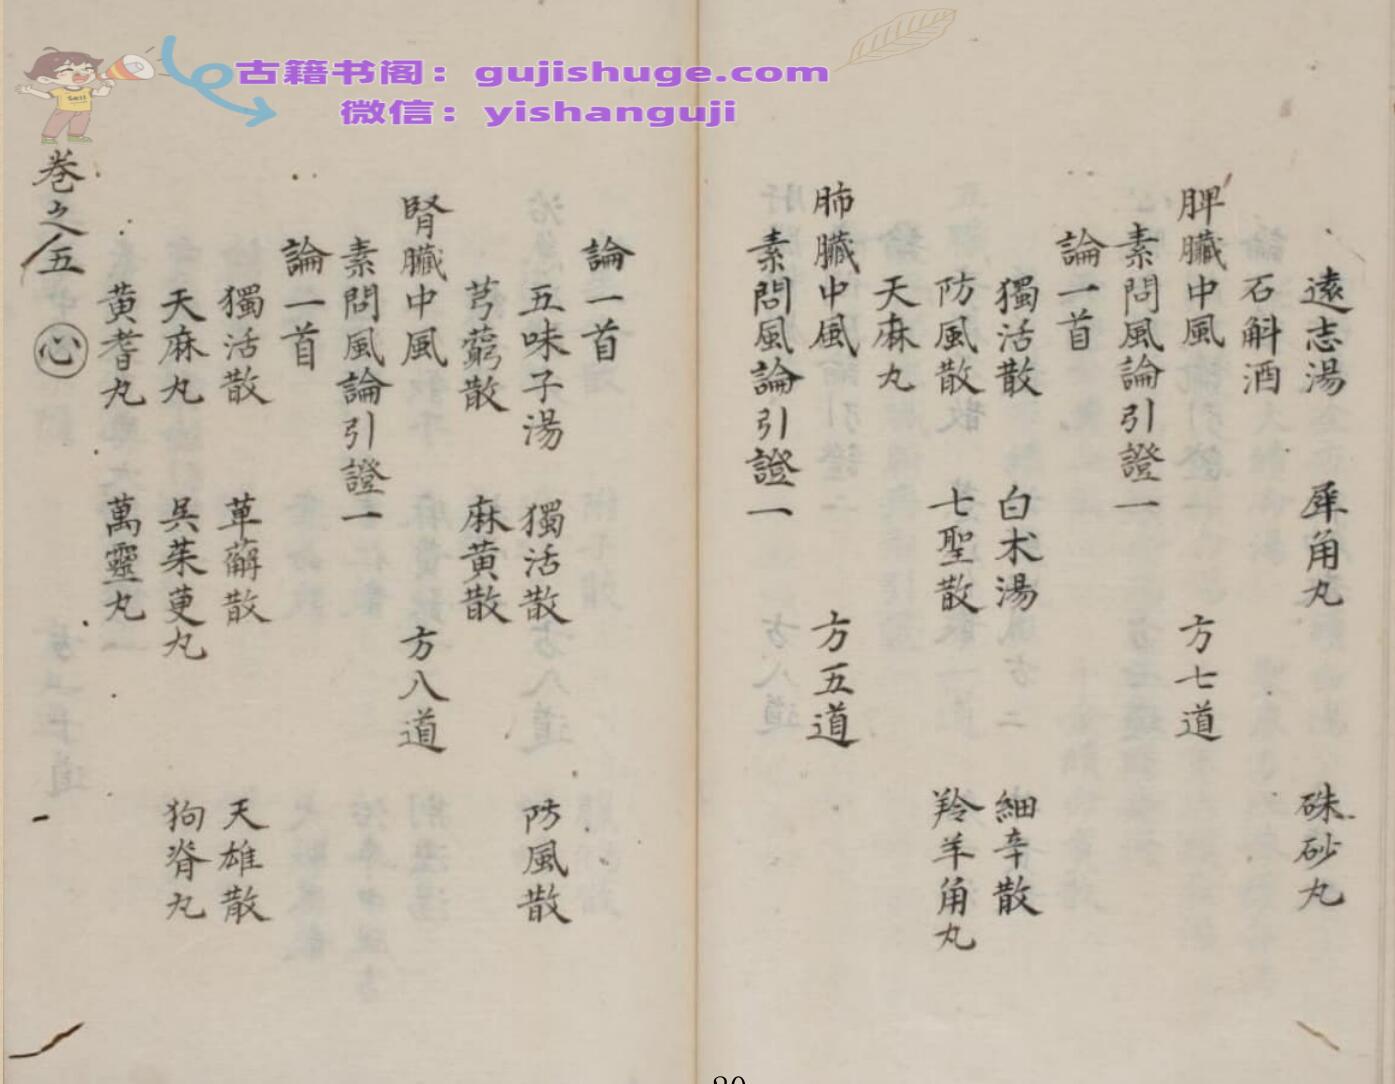 古籍书阁：gujishuge.com
微信：yishanguji
遠志湯 犀角丸 硃砂丸
石斛酒
脾臟中風 方七道
素問風論引證一
論一首
獨活散 白朮湯 細辛散
防風散 七聖散 羚羊角丸
天麻丸
肺臟中風 方五道
素問風論引證一
論一首
五味子湯 獨活散 防風散
芎藭散 麻黃散
腎臟中風 方八道
素問風論引證一
論一首
獨活散 萆薢散 天雄散
天麻丸 吳茱萸丸 狗脊丸
黃耆丸 萬靈丸
卷之五 心